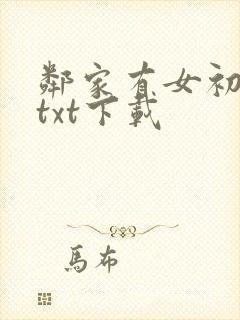 鄰家有女初
txt下載
馬布